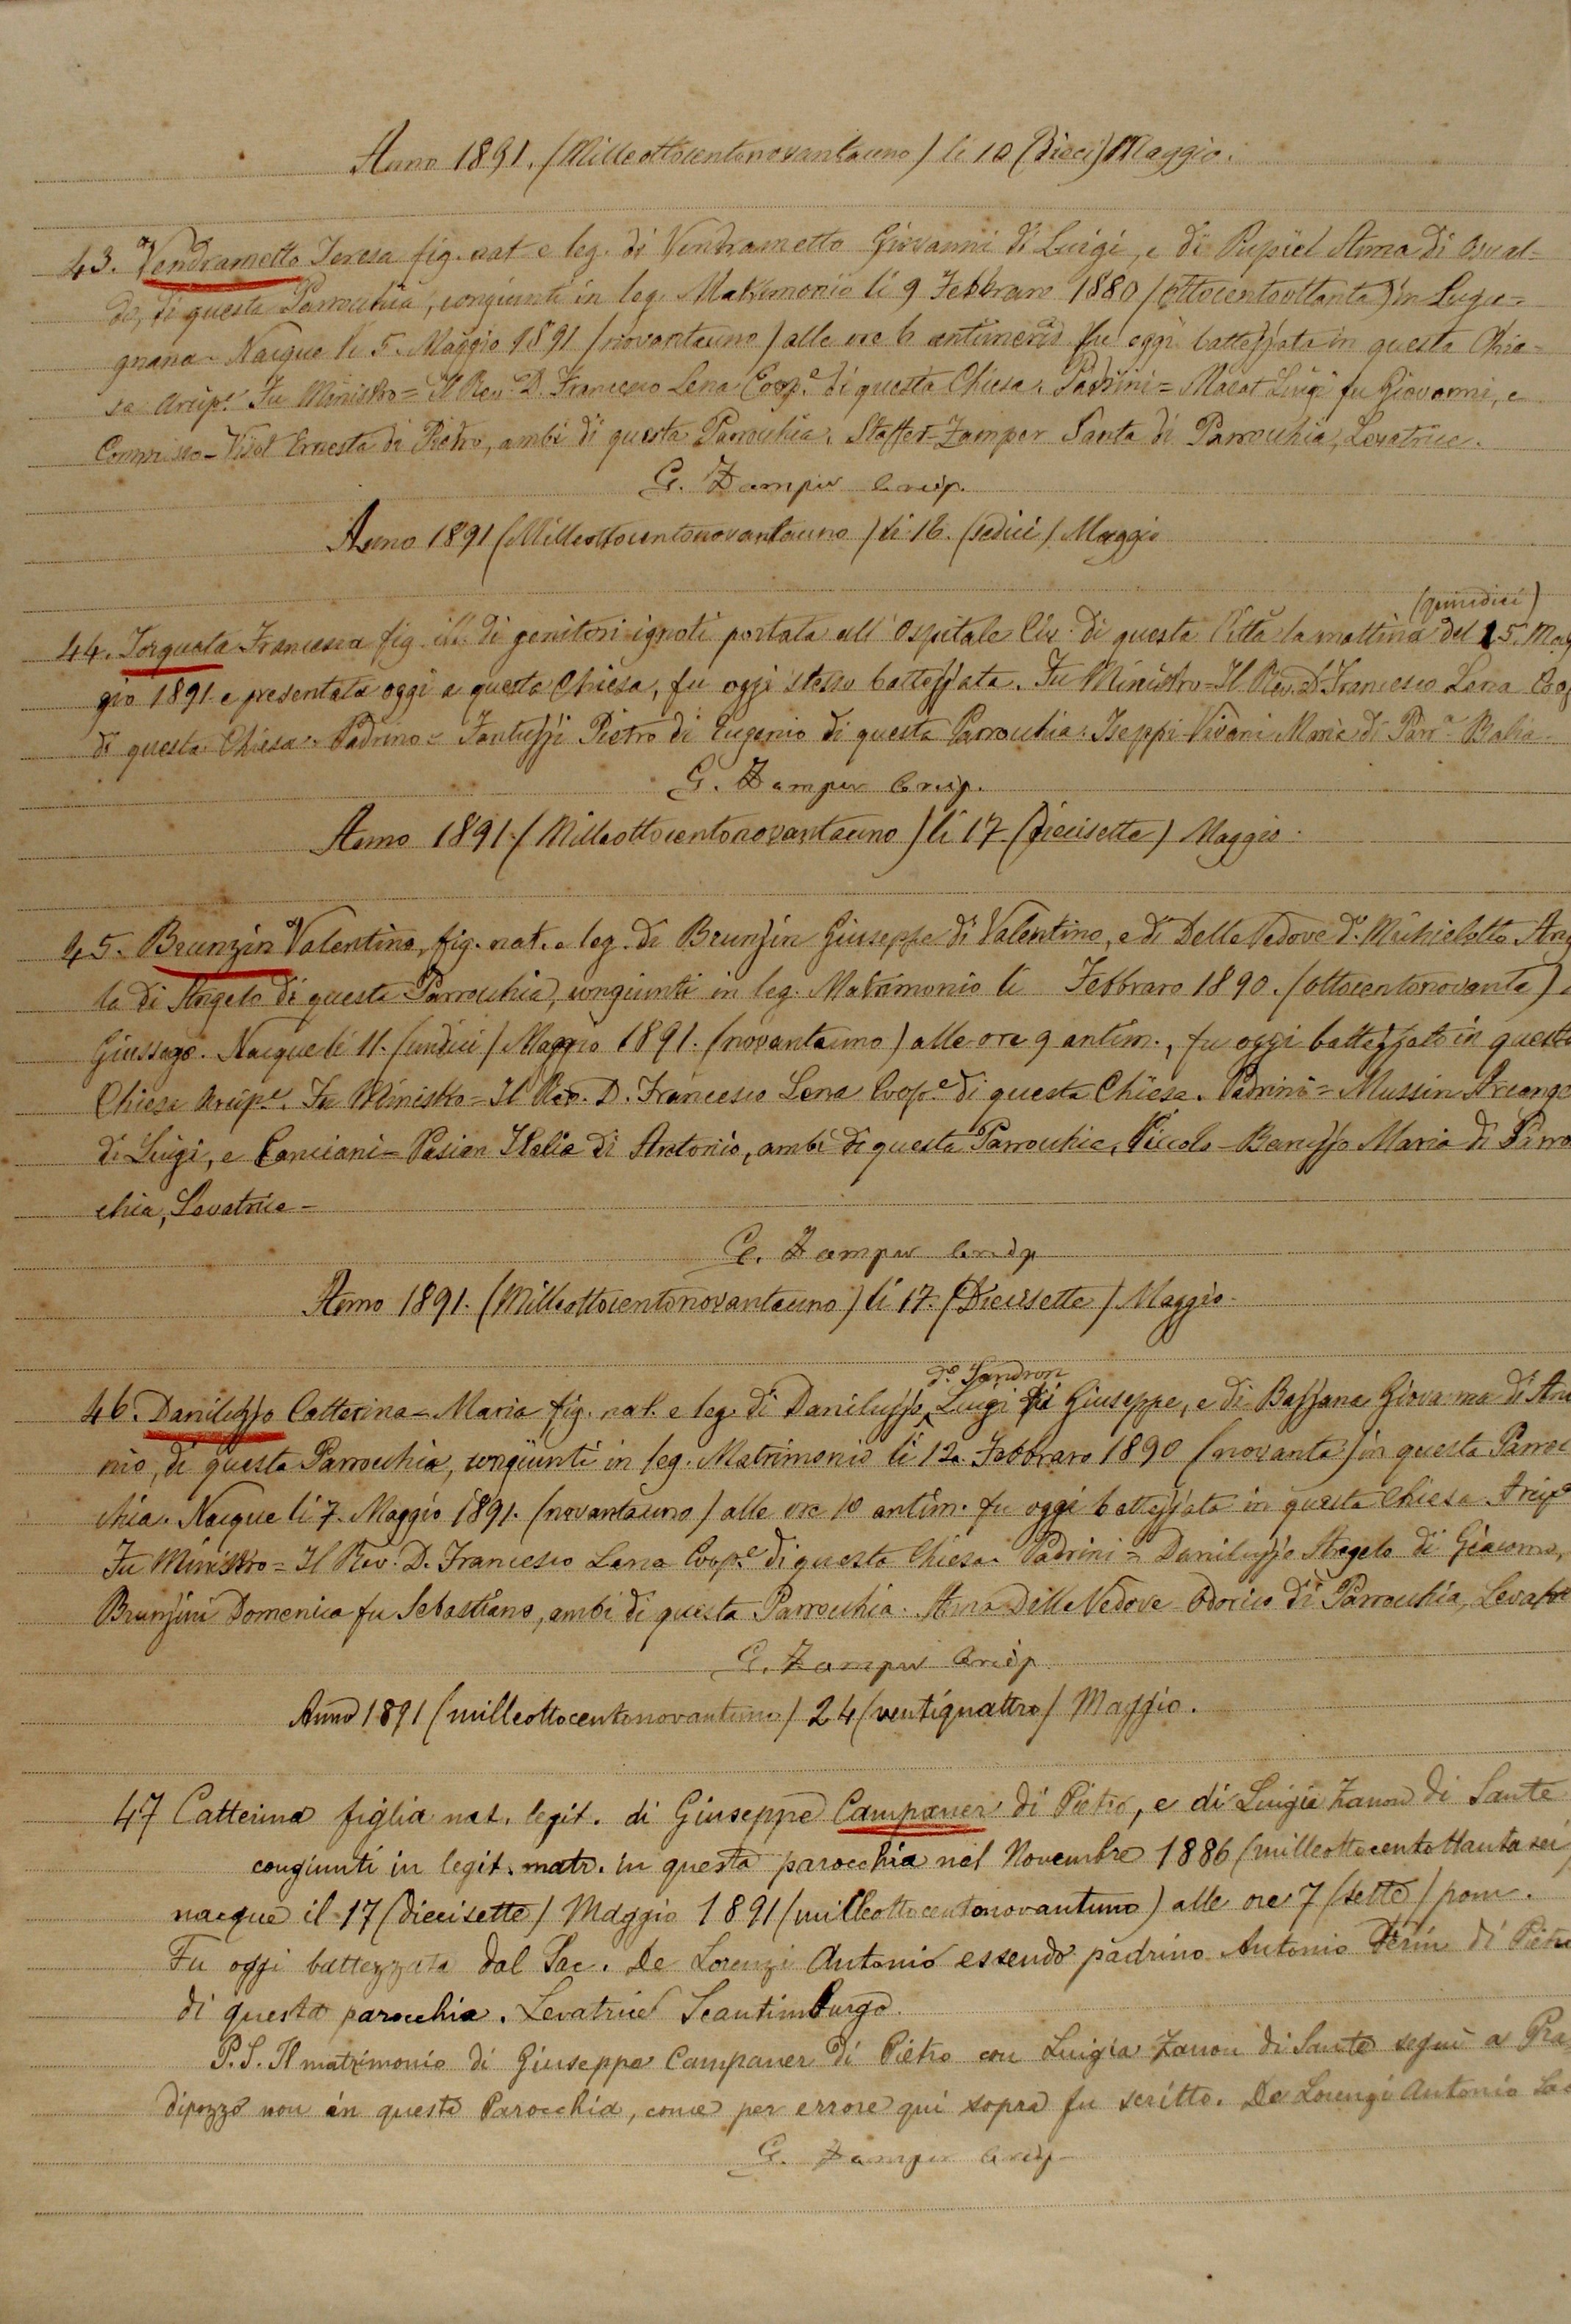 Anno 1891. (Milleottocentonovantauno) li 10 (Dieci) Maggio.
43. Vendrametto Teresa fig. nat e leg. di Vendrametto Giovanni di Luigi, e di Pupiel Anna di Osval=
do, di questa Parrochia, congiunti in leg. Matrimonio li 9 Febbraro 1880 (ottocentoottanta) in Lugu=
gnana. Nacque li 5. Maggio 1891 (novantauno) alle ore 6 antimerid. fu oggi battezzata in questa Chie=
sa Arcip.e Fu Ministro= Il Rev. D. Francesco Lena Coop.e di questa Chiesa. Padrini= Luigi fu Giovanni, e
Ernesta di Pietro, ambi di questa Parrochia. Staffet=Zamper Santa di Parrochia, Levatrice.
G. Zamper Arcip.
Anno 1891 (Milleottocentonovantauno) li 16. (sedici) Maggio
(quindici)
44. Torquata Francesca fig. ill. di genitori ignoti portata all' Ospitale Civ. di questa Città la mattina del 15. Mag
gio 1891 e presentata oggi a questa Chiesa, fu oggi stesso battezzata. Fu Ministro= Il Rev. D. Francesco Lena Coop
di questa Chiesa. Padrino= Fantuzzi Pietro di Eugenio di questa Parrochia. Iseppi-Vivani Maria di Parr.a Balia.
G. Zamper Arcip.
Anno 1891. (Milleottocentonovantauno) li 17. (Diecisette) Maggio.
45. Brunzin Valentino, fig. nat. e leg. di Brunzin Giuseppe di Valentino, e di Delle Vedove d.o Michieletto Ang
la di Angelo di questa Parrochia, congiunti in leg. Matrimonio li Febbraro 1890. (ottocentonovanta)
Giussago. Nacque li 11. (undici) Maggio 1891. (novantauno) alle ore 9 antim., fu oggi battezzato in questa
Chiesa Arcip.e. Fu Ministro= Il Rev. D. Francesco Lena Coop.e di questa Chiesa. Padrini= Mussin Arcange
di Luigi, e Canciani= Pasian Italia di Antonio, ambi di questa Parrochia. Piccolo=Baruzzo Maria di Parro
chia, Levatrice=
G. Zamper Arcip
Anno 1891. (Milleottocentonovantauno) li 17. (Diecisette) Maggio.
d.o Sandron
46. Daniluzzo Catterina=Maria fig. nat. e leg. di Daniluzzo Luigi di Giuseppe, e di Bazzana Giovanna di Anto
nio, di questa Parrochia, congiunti in leg. Matrimonio li 12. Febbraro 1890 (novanta) in questa Parroc
chia. Nacque li 7. Maggio 1891. (novantauno) alle ore 10 antim. fu oggi battezzata in questa Chiesa Arcip.e
Fu Ministro= Il Rev. D. Francesco Lena Coop.e di questa Chiesa. Padrini= Daniluzzo Angelo di Giacomo,
Brunzini Domenica fu Sebastiano, ambi di questa Parrochia. Anna Delle Vedove Odorico di Parrochia, Levatrice
G. Zamper Arcip
Anno 1891 (milleottocentonovantuno) 24 (ventiquattro) Maggio.
47 Catterina figlia nat. legit. di Giuseppe Campaner di Pietro, e di Luigia Zanon di Sante
congiunti in legit. matr. in questa parocchia nel Novembre 1886 (milleottocentottantasei)
nacque il 17 (diecisette) Maggio 1891 (milleottocentonovantuno) alle ore 7 (sette) pom.
Fu oggi battezzata dal Sac. De Lorenzi Antonio essendo padrino Antonio di Pietro
di questa parocchia. Levatrice Scantimburgo.
P.S. Il matrimonio di Giuseppe Campaner di Pietro con Luigia Zanon di Sante seguì a Pra
dipozzo non in questa Parocchia, come per errore qui sopra fu scritto. De Lorenzi Antonio Sac
G. Zamper Arcip